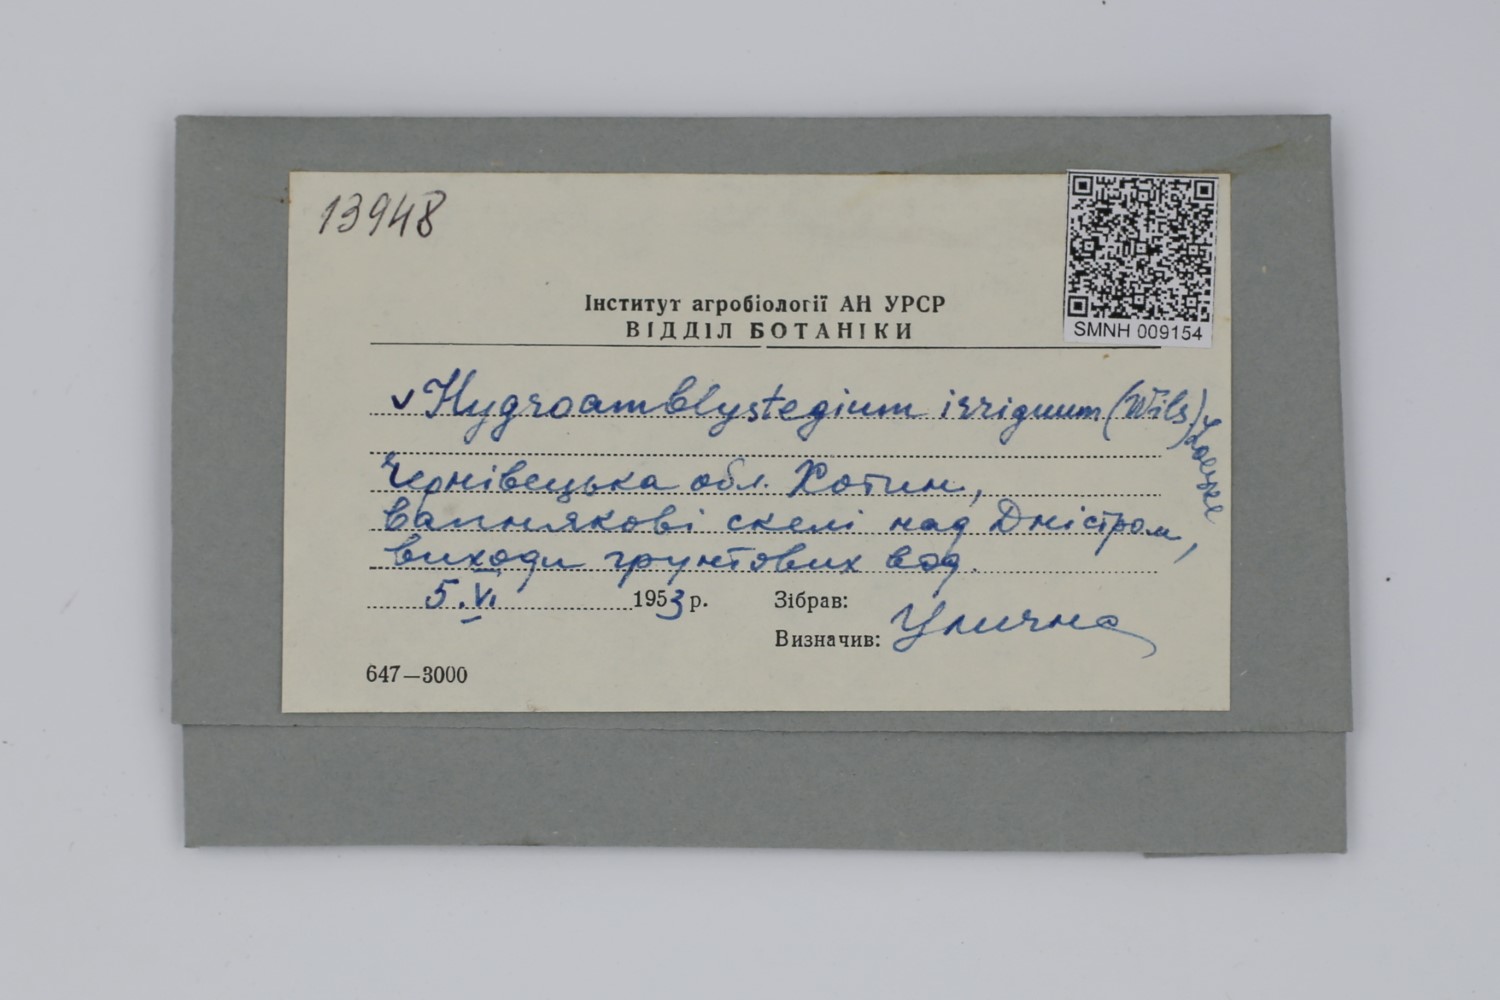 13948
SMNH 009154
Інститут агробіології АН УРСР
ВІДДІЛ БОТАНІКИ
✓ Hygroamblystegium irriguum (Wils) Loeske
Чернівецька обл. Хотин,
вапнякові скелі над Дністром,
виходи грунтових вод.
5.VI 1953 р. Зібрав:
Визначив: Улична
647—3000